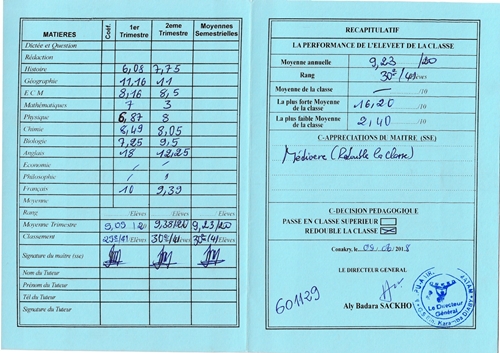 MATIERES Coéf. 1er Trimestre 2eme Trimestre Moyennes Semestrielles
Dictée et Question
Rédaction
Histoire 6,08 7,75
Géographie 11,16 11
E C M 8,16 8,5
Mathématiques 7 3
Physique 6,87 8
Chimie 8,49 8,05
Biologie 7,25 9,5
Anglais 18 12,25
Economie / /
Philosophie / /
Français 10 9,39
Moyenne
Rang /Elèves /Elèves /Elèves
Moyenne Trimestre 9,09 /20 9,38/20 9,23/20
Classement 29e/41 Elèves 30e/41 Elèves 30e/41 Elèves
Signature du maitre (sse)
Nom du Tuteur
Prénom du Tuteur
Tél du Tuteur
Signature du Tuteur
RECAPITULATIF
LA PERFORMANCE DE L'ELEVE ET DE LA CLASSE
Moyenne annuelle 9,23 /20
Rang 30e /41 élèves
Moyenne de la classe — /10
La plus forte Moyenne de la classe 16,20 /10
La plus faible Moyenne de la classe 2,40 /10
C-APPRECIATIONS DU MAITRE (SSE)
Médiocre (Redouble la classe)
C-DECISION PEDAGOGIQUE
PASSE EN CLASSE SUPERIEUR
REDOUBLE LA CLASSE
Conakry, le 2018
LE DIRECTEUR GENERAL
601129
Aly Badara SACKHO
Le Directeur
Général